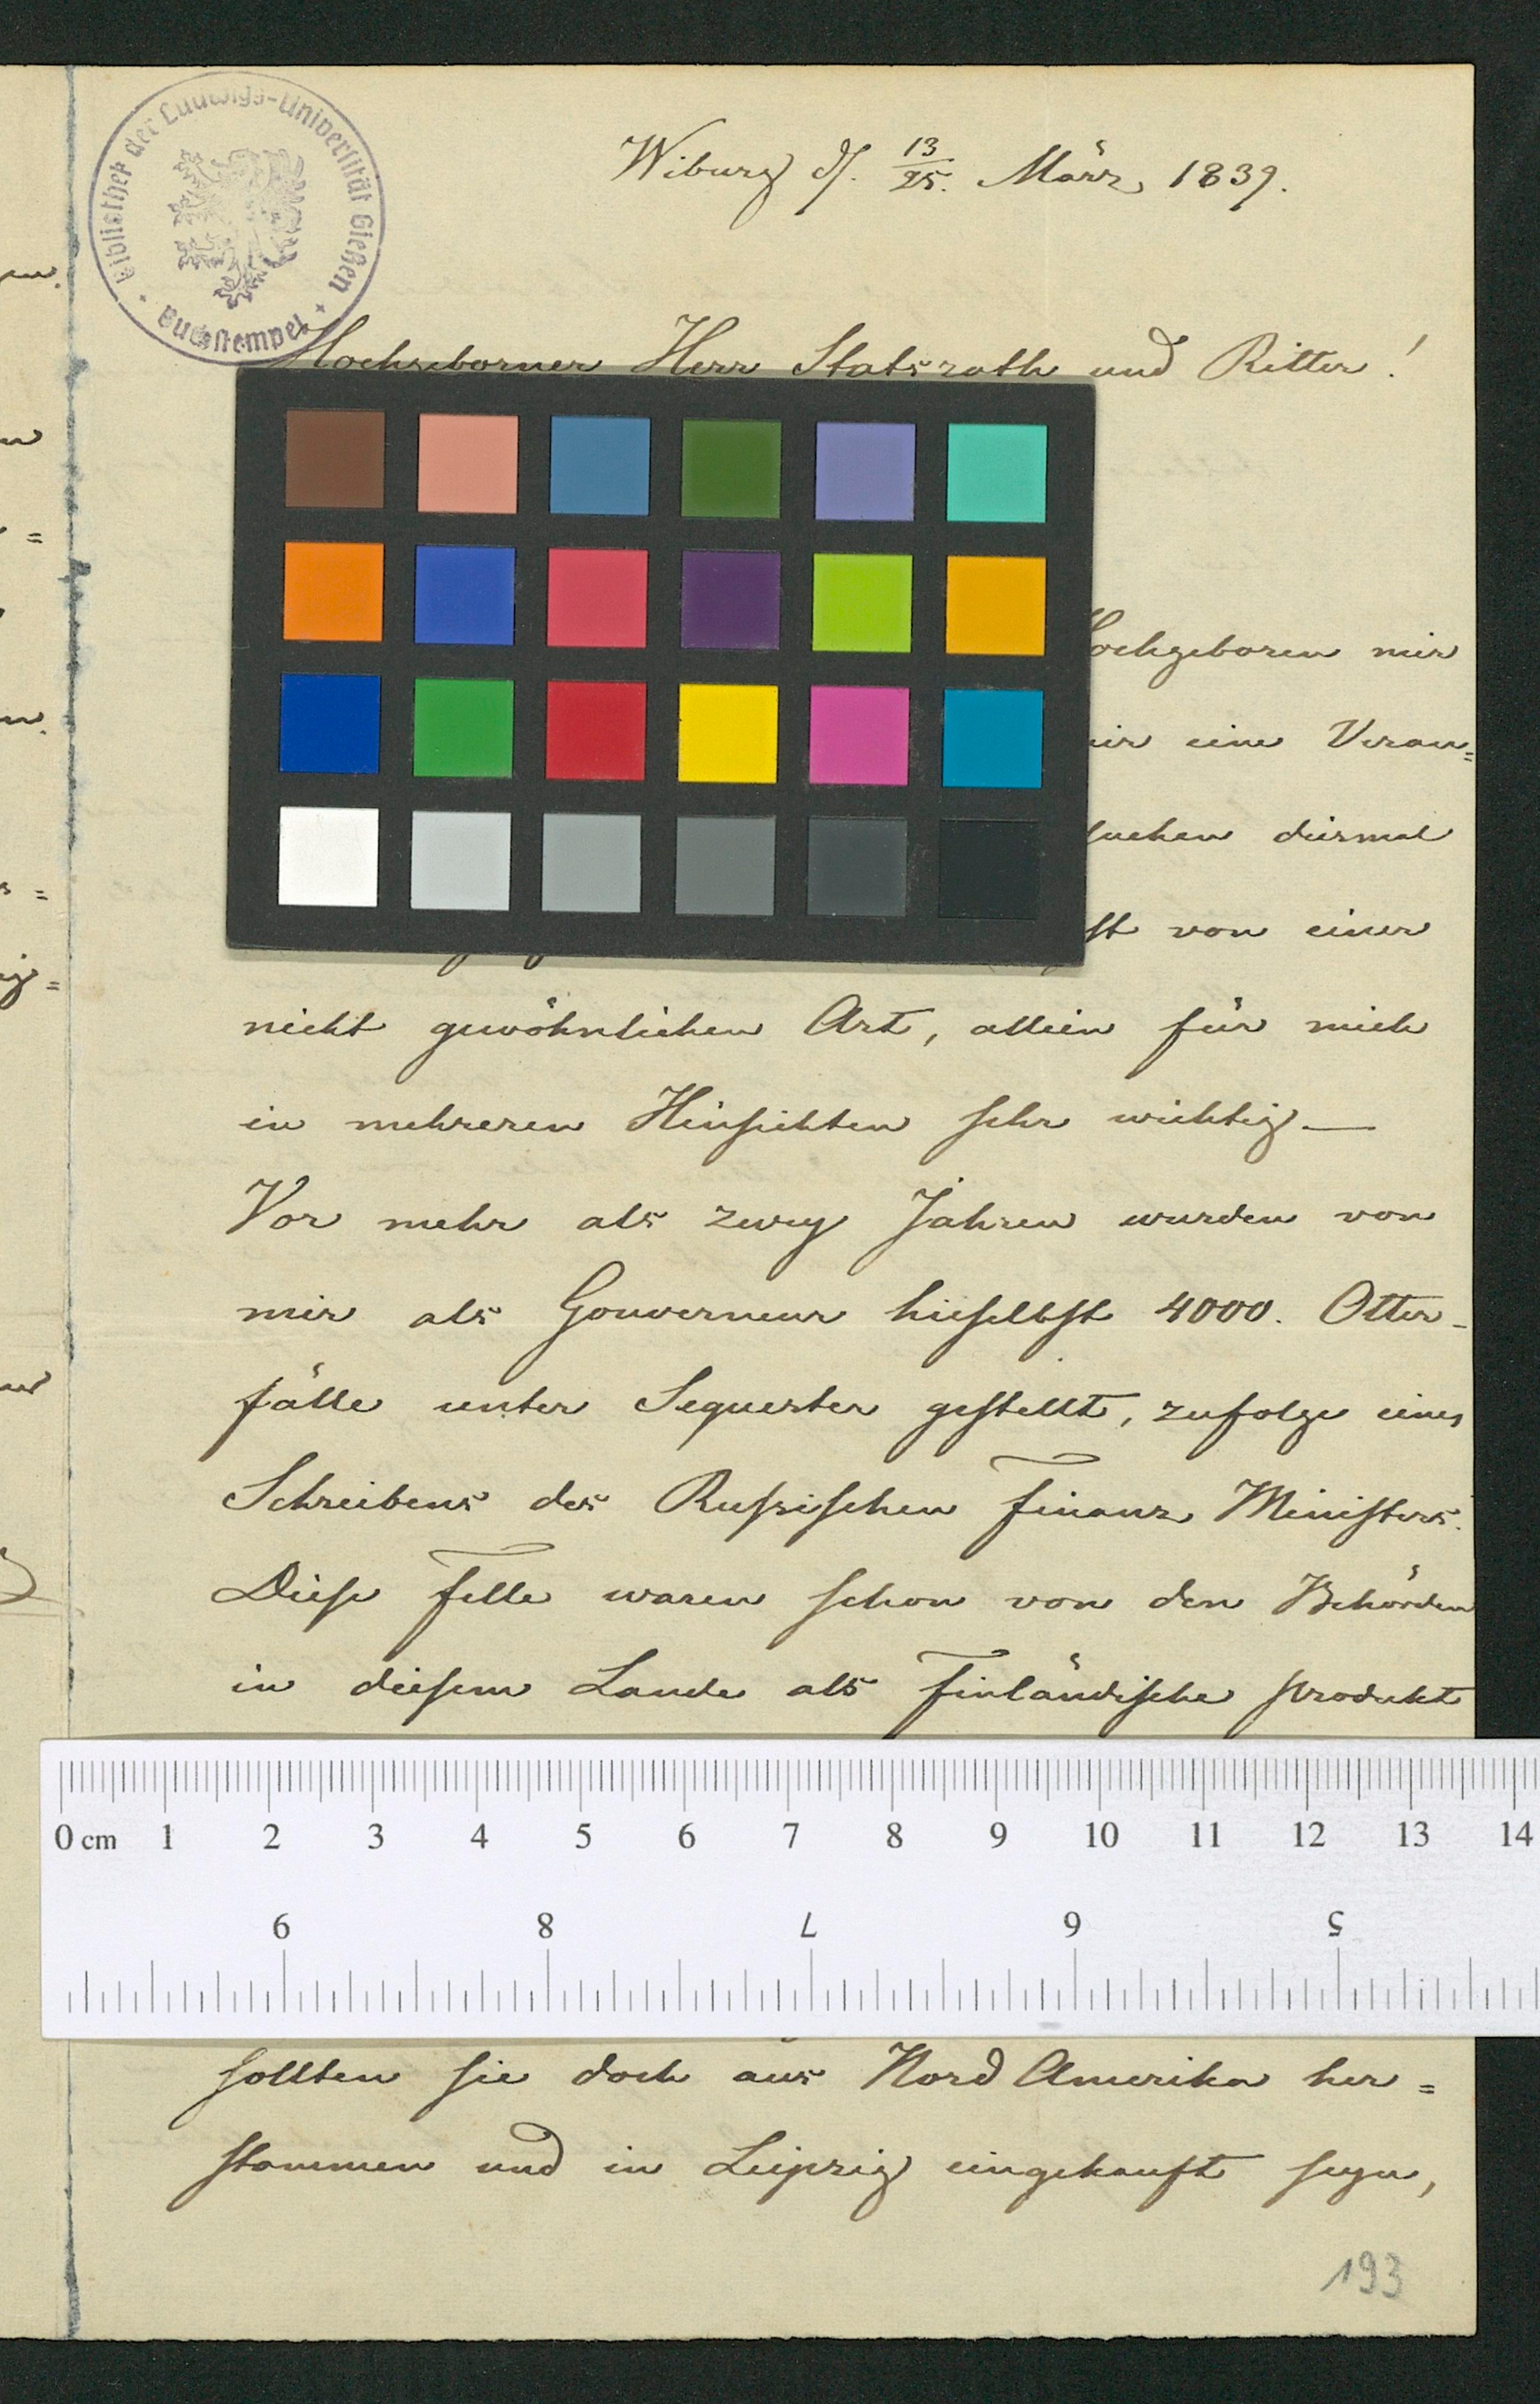 Bibliothek der Ludwigs-Universität Gießen
Buchstempel
Wiburg d. 13/25. März 1839.
Hochgeborner Herr Statsrath und Ritter!
Hochgeboren mir
mir eine Veran=
suchen diesmal
von einer
nicht gewöhnlichen Art, allein für mich
in mehreren Hinsichten sehr wichtig—
Vor mehr als zwey Jahren wurden von
mir als Gouverneur hieselbst 4000. Otter-
fälle unter Sequester gestellt, zufolge eines
Schreibens des Russischen Finanz Ministers.
Diese Felle waren schon von den Behörden
in diesem Lande als Finländische Produkt
0 cm 1 2 3 4 5 6 7 8 9 10 11 12 13 14
9 8 7 6 5
sollten sie doch aus Nord Amerika her=
stammen und in Leipzig eingekauft seyn,
193